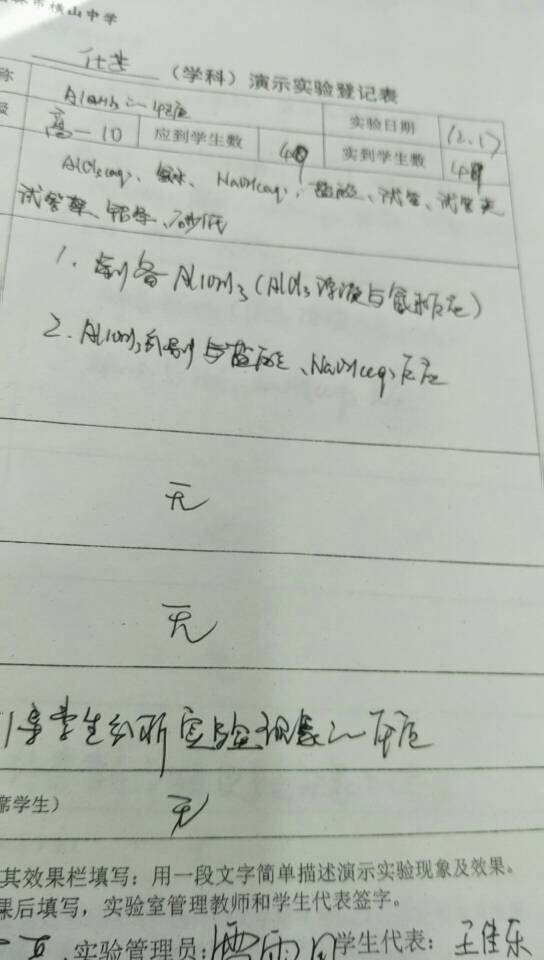 横山中学
化学 （学科）演示实验登记表
称 Al(OH)3的性质 实验日期 12.17
级 高一10 应到学生数 49 实到学生数 49
AlCl3(aq)、氨水、NaOH(aq)、盐酸、试管、试管夹
试管架、砂纸
1. 制备Al(OH)3（AlCl3溶液与氨水反应）
2. Al(OH)3分别与盐酸、NaOH(aq)反应
无
无
引导学生分析实验现象的
席学生） 无
其效果栏填写：用一段文字简单描述演示实验现象及效果。
课后填写，实验室管理教师和学生代表签字。
实验管理员： 学生代表：王佳乐